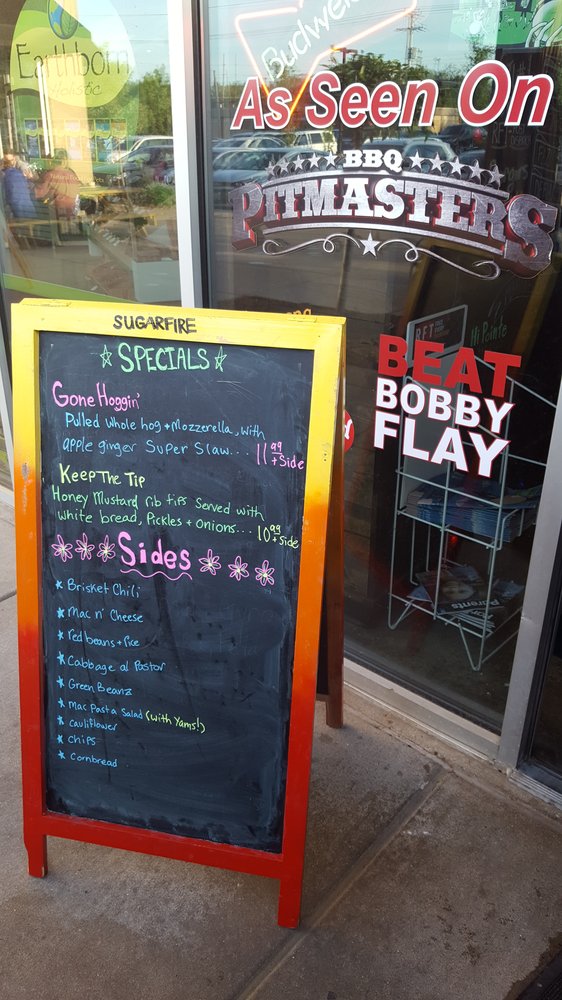 Earthborn
Holistic
Budweiser
As Seen On
BBQ
PITMASTERS
BEAT
BOBBY
FLAY
Hi Pointe
Parents
SUGARFIRE
☆ SPECIALS ☆
Gone Hoggin'
Pulled whole hog + Mozzerella, with
apple ginger Super Slaw... 11.99 + Side
Keep The Tip
Honey Mustard rib tips Served with
white bread, Pickles + Onions... 10.99 + Side
Sides
★ Brisket Chili
★ Mac n' Cheese
★ red beans + rice
★ Cabbage al Pastor
★ Green Beanz
★ Mac Pasta Salad (with Yams!)
★ Cauliflower
★ Chips
★ Cornbread